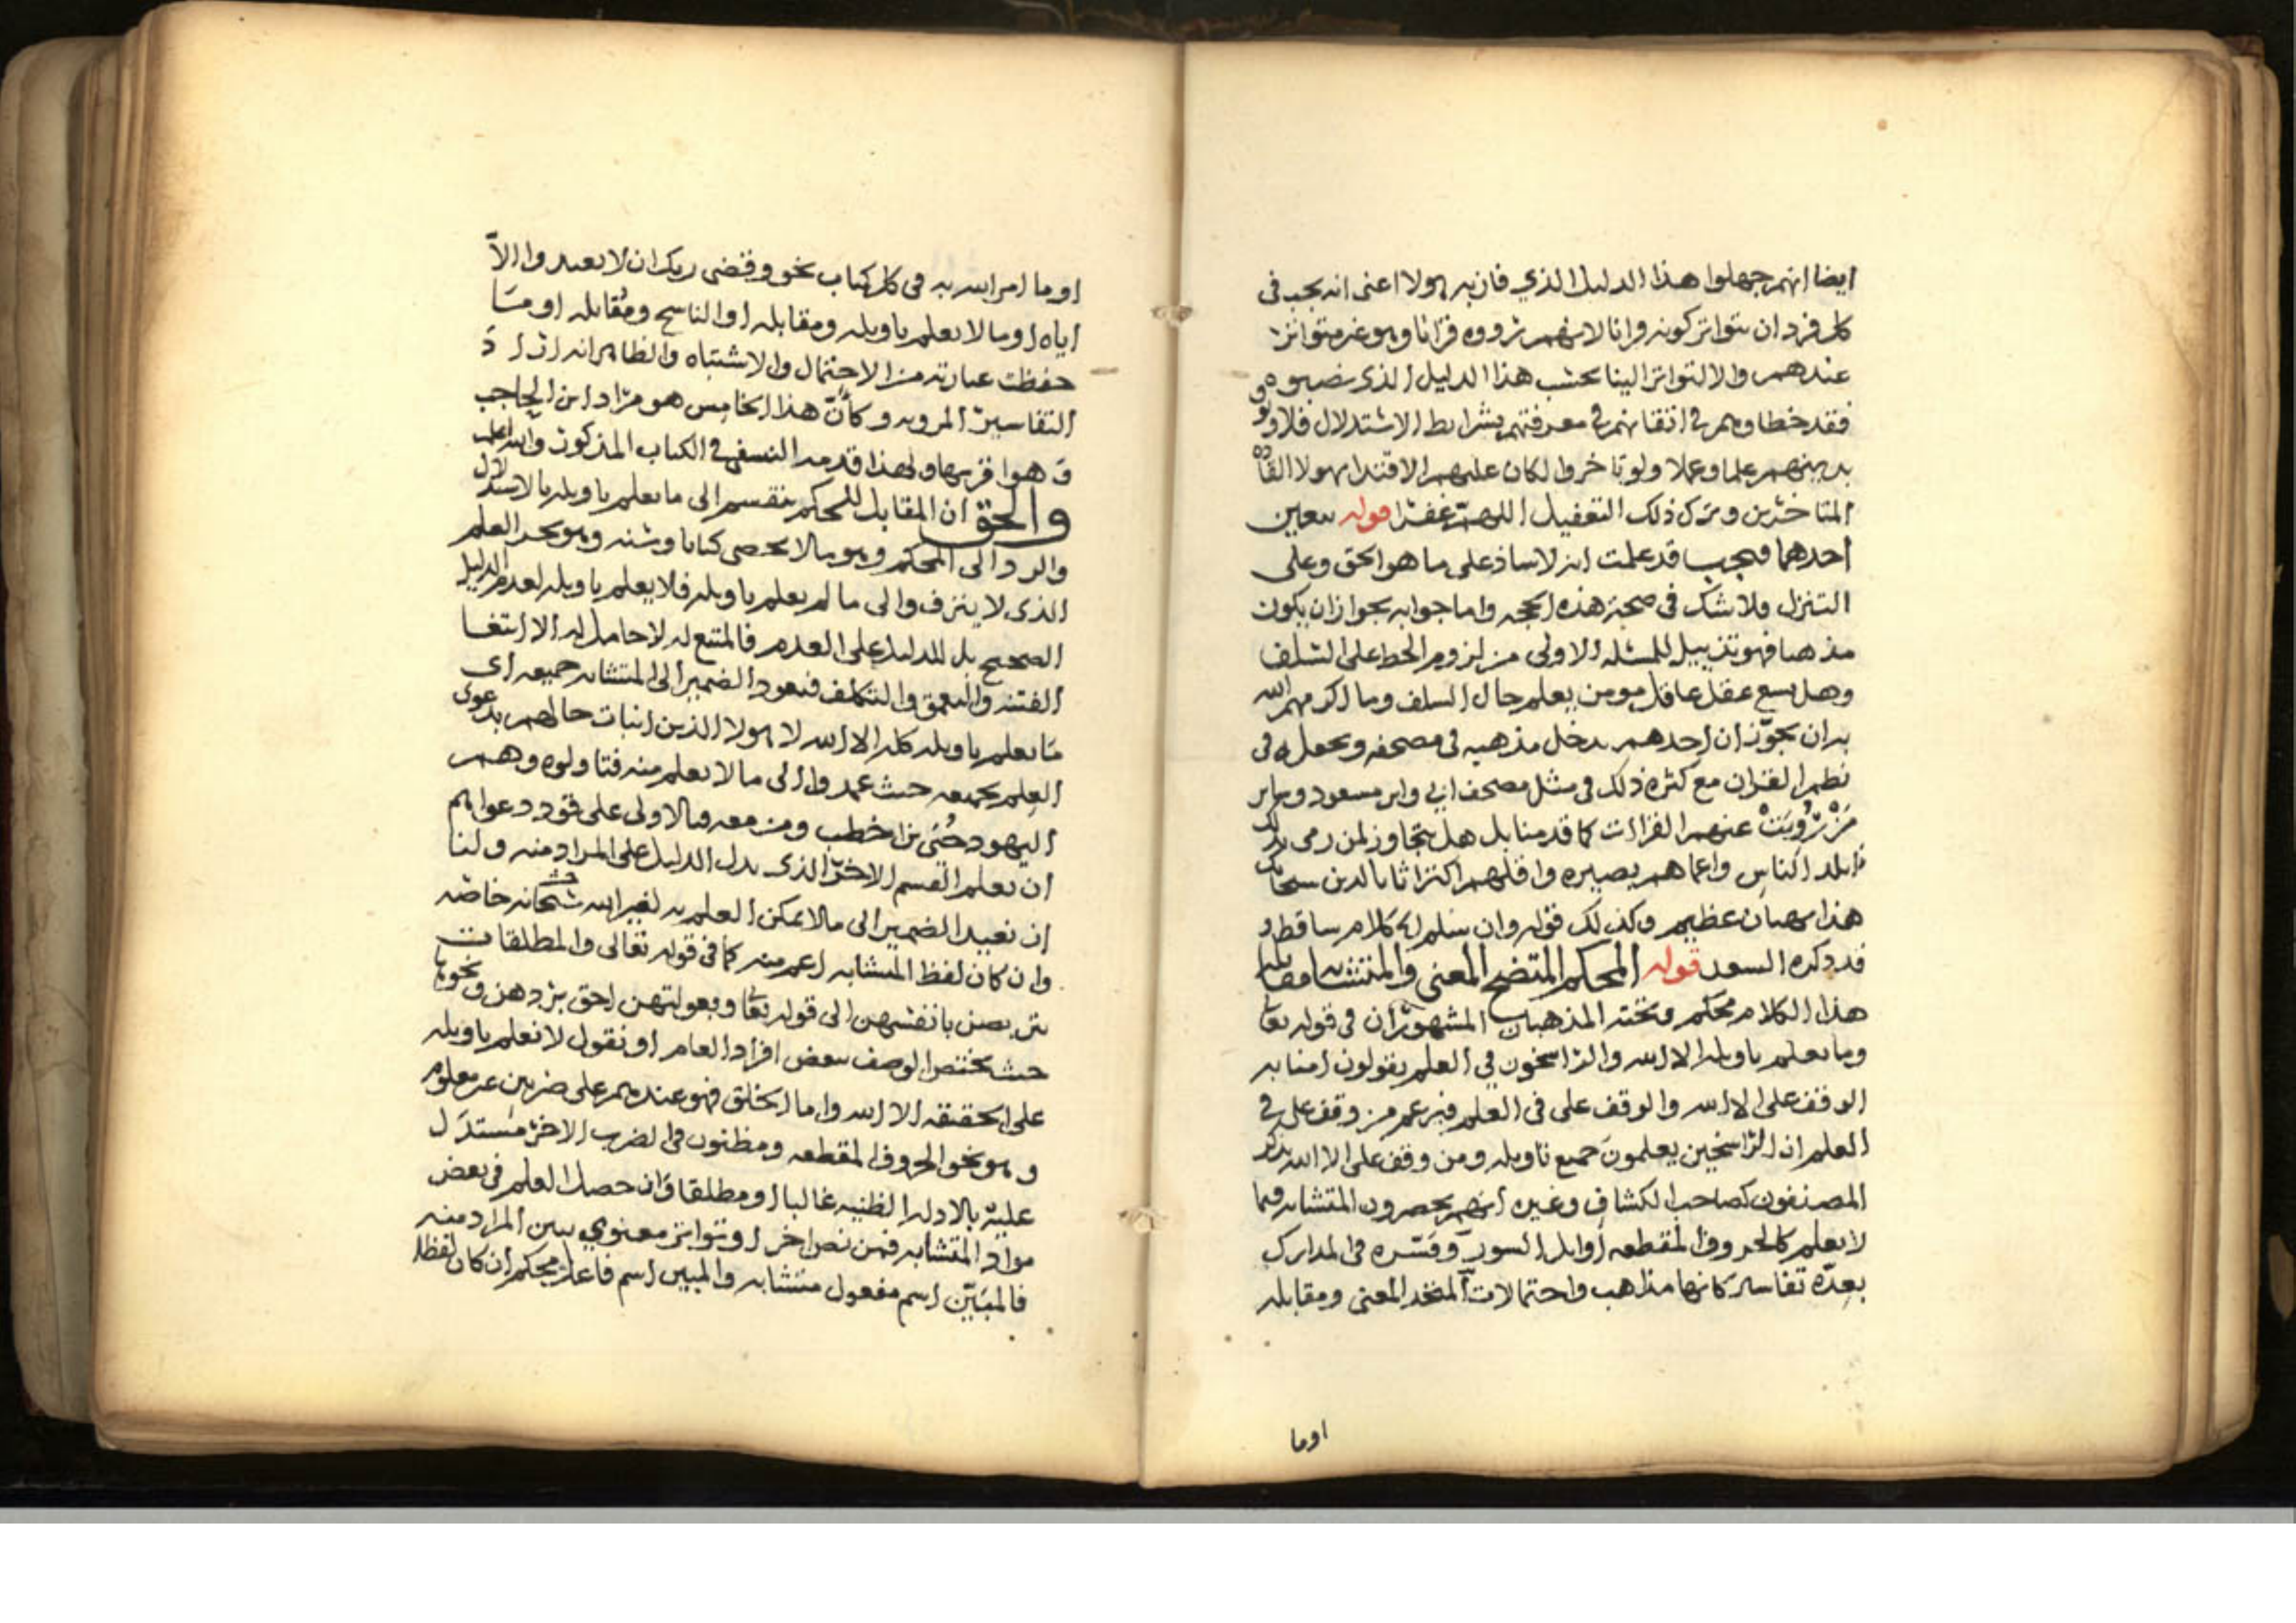 ايضا انهم جهلوا هذا الدليل الذي فاز به هولا اعنى انه يجب فى
كل فرد ان يتواتر كونه قرانا لانهم رووه قرانا وهو غير متواتر
عندهم والا لتواتر الينا بحسب هذا الدليل الذى نصبوه
فقد خطاوهم في اتقانهم في معرفتهم بشرايط الاستدلال فلا
بد بينهم علما وعملا ولو تاخروا لكان عليهم الاقتدا بهولا القادة
المتاخرين وترك ذلك التغفيل اللهم غفرا قوله بتعيين
احدهما فيجب قد علمت انه لا ساذ على ما هو الحق وعلى
التنزل فلا شك فى صحة هذه الحجه واما جوابه بجواز ان يكون
مذهبا فهو تذييل للمسئله الاولى من لزوم الحط على السلف
وهل يسع عقل عاقل مومن يعلم حال السلف وما اكرمهم الله
به ان يجوز ان احدهم يدخل مذهبه فى مصحفه ويجعله فى
نظم القران مع كثرة ذلك فى مثل مصحف ابي وابن مسعود وساير
من رويت عنهم القراات كما قدمنا بل هل يتجاوز لمن رمى بذلك
ابلد الناس واعماهم بصيره واقلهم اكتراثا بالدين سبحانك
هذا بهتان عظيم وكذلك قوله وان سلم الخ كلام ساقط و
قد ذكره السعد قوله المحكم المتضح المعنى والمتشابه مقابله
هذا الكلام محكم وتحته المذهبان المشهوران فى قوله تعا
وما يعلم تاويله الا الله والراسخون في العلم يقولون امنا به
الوقف على الا الله والوقف على فى العلم فيزعم من وقف على في
العلم ان الراسخين يعلمون جميع تاويله ومن وقف على الا الله يذكر
المصنفون كصاحب الكشاف وغيره انهم يحصرون المتشابه فيما
لا يعلم كالحروف المقطعه اوايل السور وفسره فى المدارك
بعدة تفاسير كانها مذاهب واحتمالات المتحد المعنى ومقابله
اوما
اوما امر الله به فى كل كتاب نحو وقضى ربك ان لا تعبدوا الا
اياه اوما لا يعلم تاويله ومقابله او الناسخ ومقابله او ما
حفظت عبارته من الاحتمال والاشتباه والظاهر انه اراد
التفاسير المرويه وكأن هذا الخامس هو مراد ابن الحاجب
وهو اقربها ولهذا قدمه النسفي في الكتاب المذكور والله اعلم
والحق ان المقابل للمحكم ينقسم الى ما يعلم تاويله بالاستدلال
والرد الى المحكم وهو ما لا يحصى كتابا وسنه وهو بحر العلم
الذى لا ينزف والى ما لم يعلم تاويله فلا يعلم تاويله لعدم الدليل
الصحيح بل للدليل على العدم فالمتبع له لا حامل له الا ابتغا
الفتنه والتعمق والتكلف فيعود الضمير الى المتشابه جميعه اى
ما يعلم تاويله كله الا الله لا هولا الذين اثبات حالهم بدعوى
العلم بجميعه حيث عمدوا الى ما لا يعلم منه فتاولوه وهم
اليهود حيى بن اخطب ومن معه فالاولى على قود دعواهم
ان يعلم القسم الاخر الذى يدل الدليل على المراد منه ولنا
ان نعيد الضمير الى ما لا يمكن العلم به لغير الله سبحانه خاصه
وان كان لفظ المتشابه اعم منه كما فى قوله تعالى والمطلقات
يتربصن بانفسهن الى قوله تعا وبعولتهن احق بردهن ونحوها
حيث يختص الوصف ببعض افراد العام او نقول لا نعلم تاويله
على الحقيقه الا الله واما الخلق فهو عندهم على ضربين غير معلوم
وهو نحو الحروف المقطعه ومظنون فى الضرب الاخر مستدل
عليه بالادله الظنيه غالبا او مطلقا وان حصل العلم فى بعض
مواد المتشابه فمن نص اخر او تواتر معنوي يبين المراد منه
فالمبين اسم مفعول متشابه والمبين اسم فاعل محكم ان كان لفظا